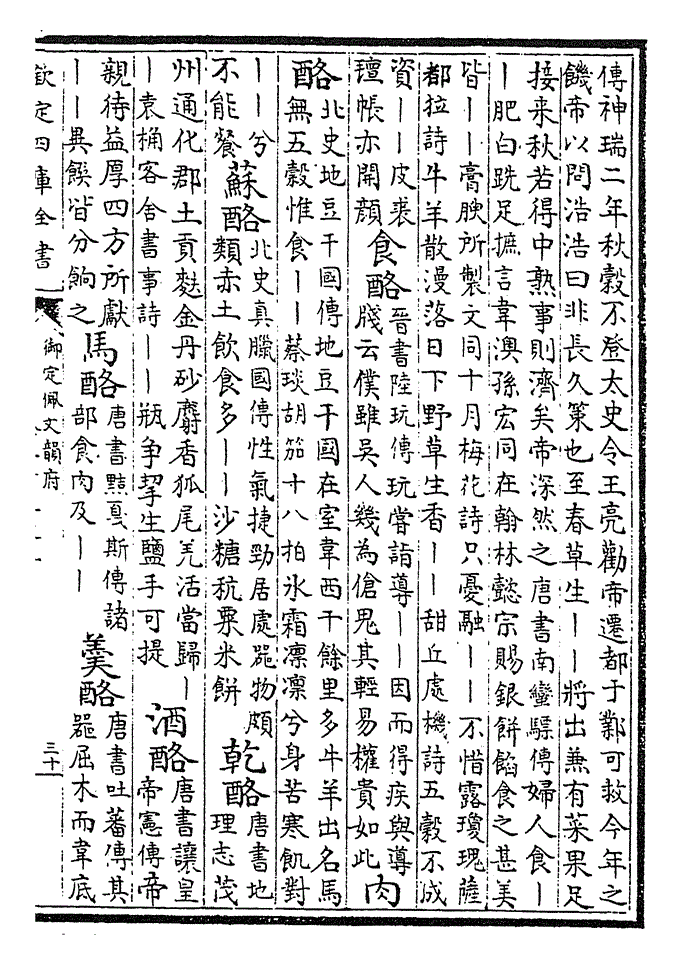 傳神瑞二年秋穀不登太史令王亮勸帝遷都于鄴可救今年之
饑帝以問浩浩曰非長久策也至春草生｜｜將出兼有菜果足
接来秋若得中熟事則濟矣帝深然之唐書南蠻驃傳婦人食｜
｜肥白跣足摭言韋澳孫宏同在翰林懿宗賜銀餅餡食之甚美
皆｜｜膏腴所製文同十月梅花詩只憂融｜｜不惜露瓊瑰薩
都拉詩牛羊散漫落日下野草生香｜｜甜丘處機詩五穀不成
資｜｜皮裘
氊帳亦開顔
食酪
晉書陸玩傳玩嘗詣導｜｜因而得疾與導
牋云僕雖吳人幾為傖鬼其輕易權貴如此
肉
酪
北史地豆干國傳地豆干國在室韋西千餘里多牛羊出名馬
無五穀惟食｜｜蔡琰胡笳十八拍氷霜凛凛兮身苦寒飢對
｜｜兮
不能餐
蘇酪
北史真臘國傳性氣捷勁居處器物頗
類赤土飲食多｜｜沙糖秔粟米餅
乾酪
唐書地
理志茂
州通化郡土貢麩金丹砂麝香狐尾羌活當歸｜
｜袁桷客舍書事詩｜｜瓶争挈生鹽手可提
酒酪
唐書讓皇
帝憲傳帝
親待益厚四方所獻
｜｜異饌皆分餉之
馬酪
唐書黠戛斯傳諸
部食肉及｜｜
羹酪
唐書吐蕃傳其
器屈木而韋底
欽定四庫全書
御定佩文韻府
三十一